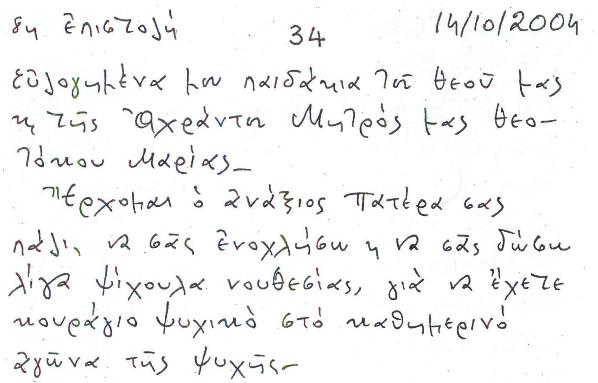 8η ἐπιστολή 34 14/10/2004
εὐλογημένα μου παιδάκια τοῦ Θεοῦ μας
κ τῆς Ἀχράντου Μητρός μας Θεο-
τόκου Μαρίας_
Ἔρχομαι ὁ ἀνάξιος πατέρα σας
πάλι, νὰ σᾶς ἐνοχλήσω κ νὰ σᾶς δώσω
λίγα ψίχουλα νουθεσίας, γιὰ νὰ ἔχετε
κουράγιο ψυχικὸ στό καθημερινό
ἀγῶνα τῆς ψυχῆς_